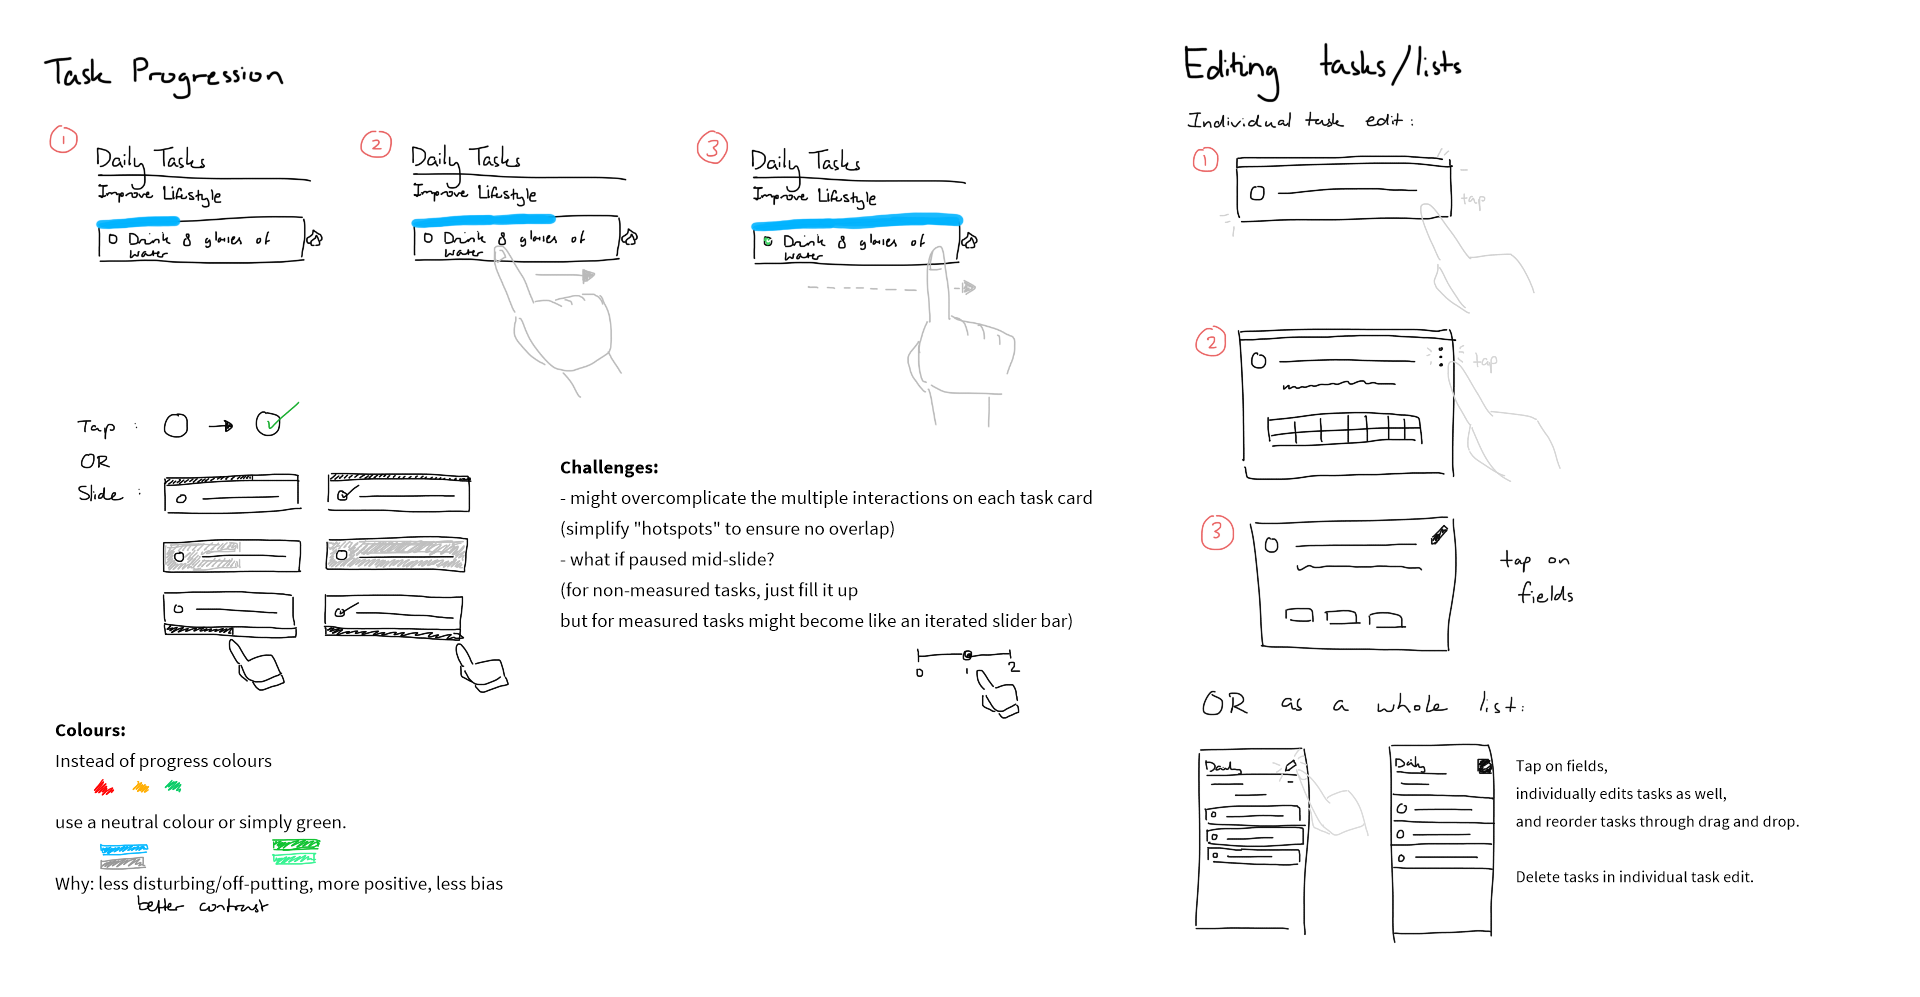 Task Progression
1
Daily Tasks
Improve Lifestyle
Drink 8 glasses of
water
2
Daily Tasks
Improve Lifestyle
Drink 8 glasses of
water
3
Daily Tasks
Improve Lifestyle
Drink 8 glasses of
water
Tap :
OR
Slide :
Challenges:
- might overcomplicate the multiple interactions on each task card
(simplify "hotspots" to ensure no overlap)
- what if paused mid-slide?
(for non-measured tasks, just fill it up
but for measured tasks might become like an iterated slider bar)
0 1 2
Colours:
Instead of progress colours
use a neutral colour or simply green.
Why: less disturbing/off-putting, more positive, less bias
better contrast
Editing tasks/lists
Individual task edit :
1
tap
2
tap
3
tap on
fields
OR as a whole list:
Daily
Daily
Tap on fields,
individually edits tasks as well,
and reorder tasks through drag and drop.
Delete tasks in individual task edit.